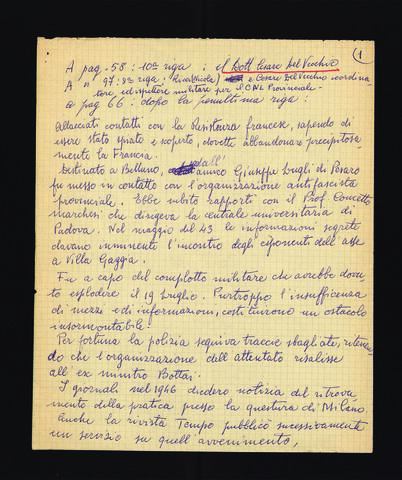 1
A pag. 58: 10ª riga: il Dott Cesare Del Vecchio
A " 97: 9ª riga: e Cesare Del Vecchio coordina-
tore ed ispettore militare per il CNL Provinciale.
a pag 66: dopo la penultima riga:
Allacciati contatti con la Resistenza francese, sapendo di
essere stato spiato e scoperto, dovette abbandonare precipitosa-
mente la Francia.
Destinato a Belluno, dall'amico Giuseppe Lugli di Pesaro
fu messo in contatto con l'organizzazione antifascista
provinciale. Ebbe subito rapporti con il Prof. Concetto
Marchesi che dirigeva la centrale universitaria di
Padova. Nel maggio del 43 le informazioni segrete
davano imminente l'incontro degli esponenti dell'asse
a Villa Gaggia.
Fu a capo del complotto militare che avrebbe dovu-
to esplodere il 19 luglio. Purtroppo l'insufficenza
di mezzi e di informazioni, costituirono un ostacolo
insormontabile.
Per fortuna la polizia seguiva traccie sbagliate, ritenen-
do che l'organizzazione dell'attentato risalisse
all'ex ministro Bottai.
I giornali nel 1946 diedero notizia del ritrova-
mento della pratica presso la questura di Milano.
Anche la rivista Tempo pubblicò successivamente
un servizio su quell'avvenimento,